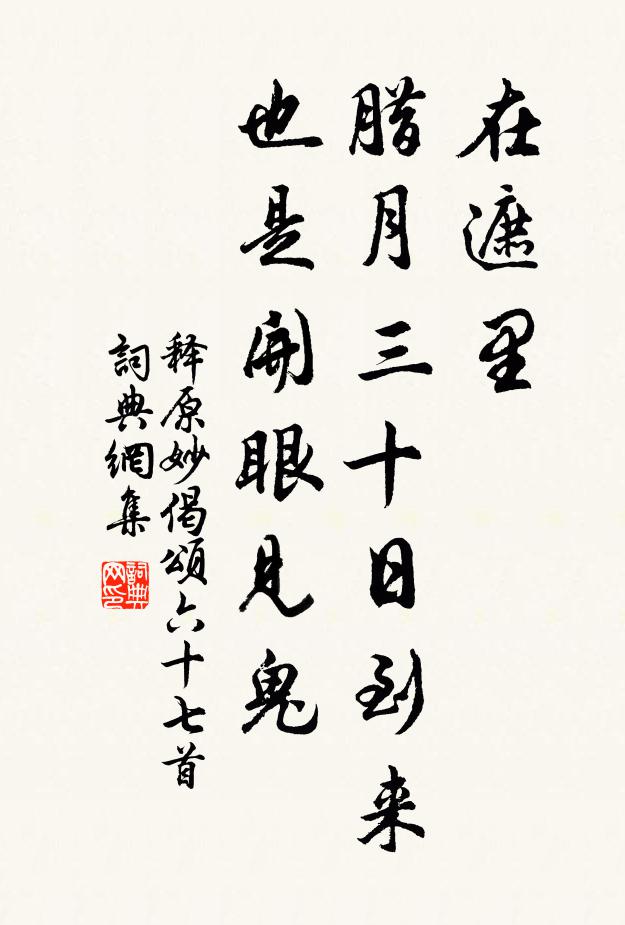 在遮里
腊月三十日到来
也是開眼見鬼
释原妙偈頌六十七首
詞典網集
詞典網印